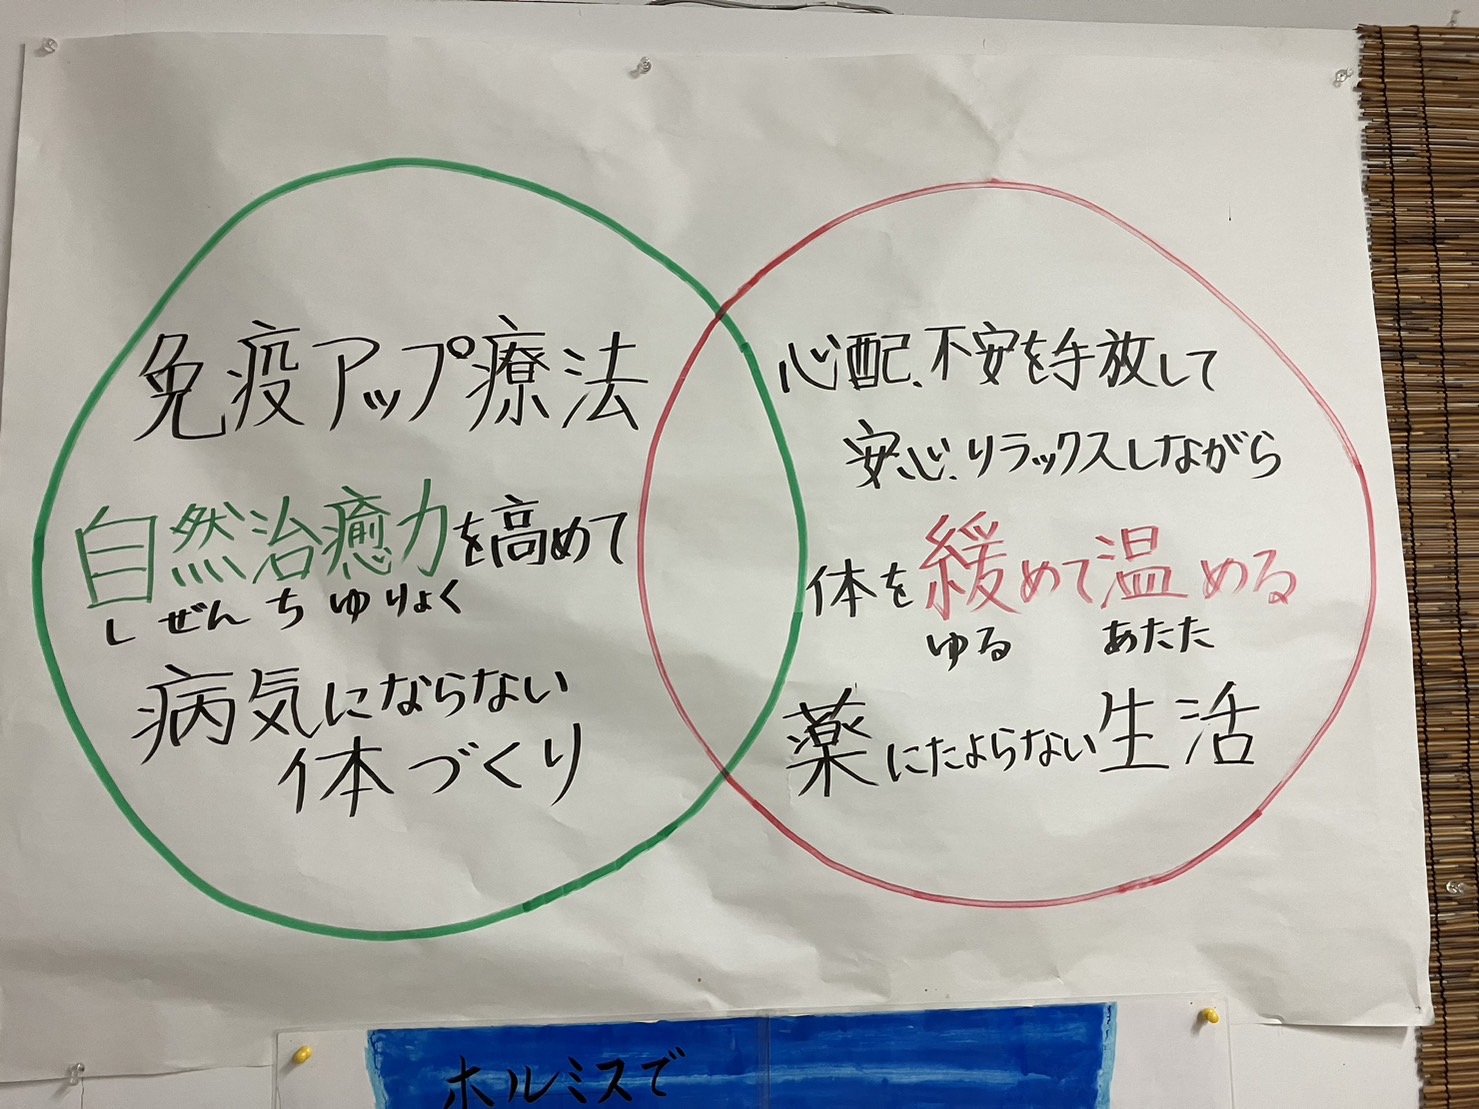 免疫アップ療法
自然治癒力を高めて
しぜんちゆりょく
病気にならない
体づくり
心配、不安を手放して
安心、リラックスしながら
体を緩めて温める
ゆる あたた
薬にたよらない生活
ホルミスで